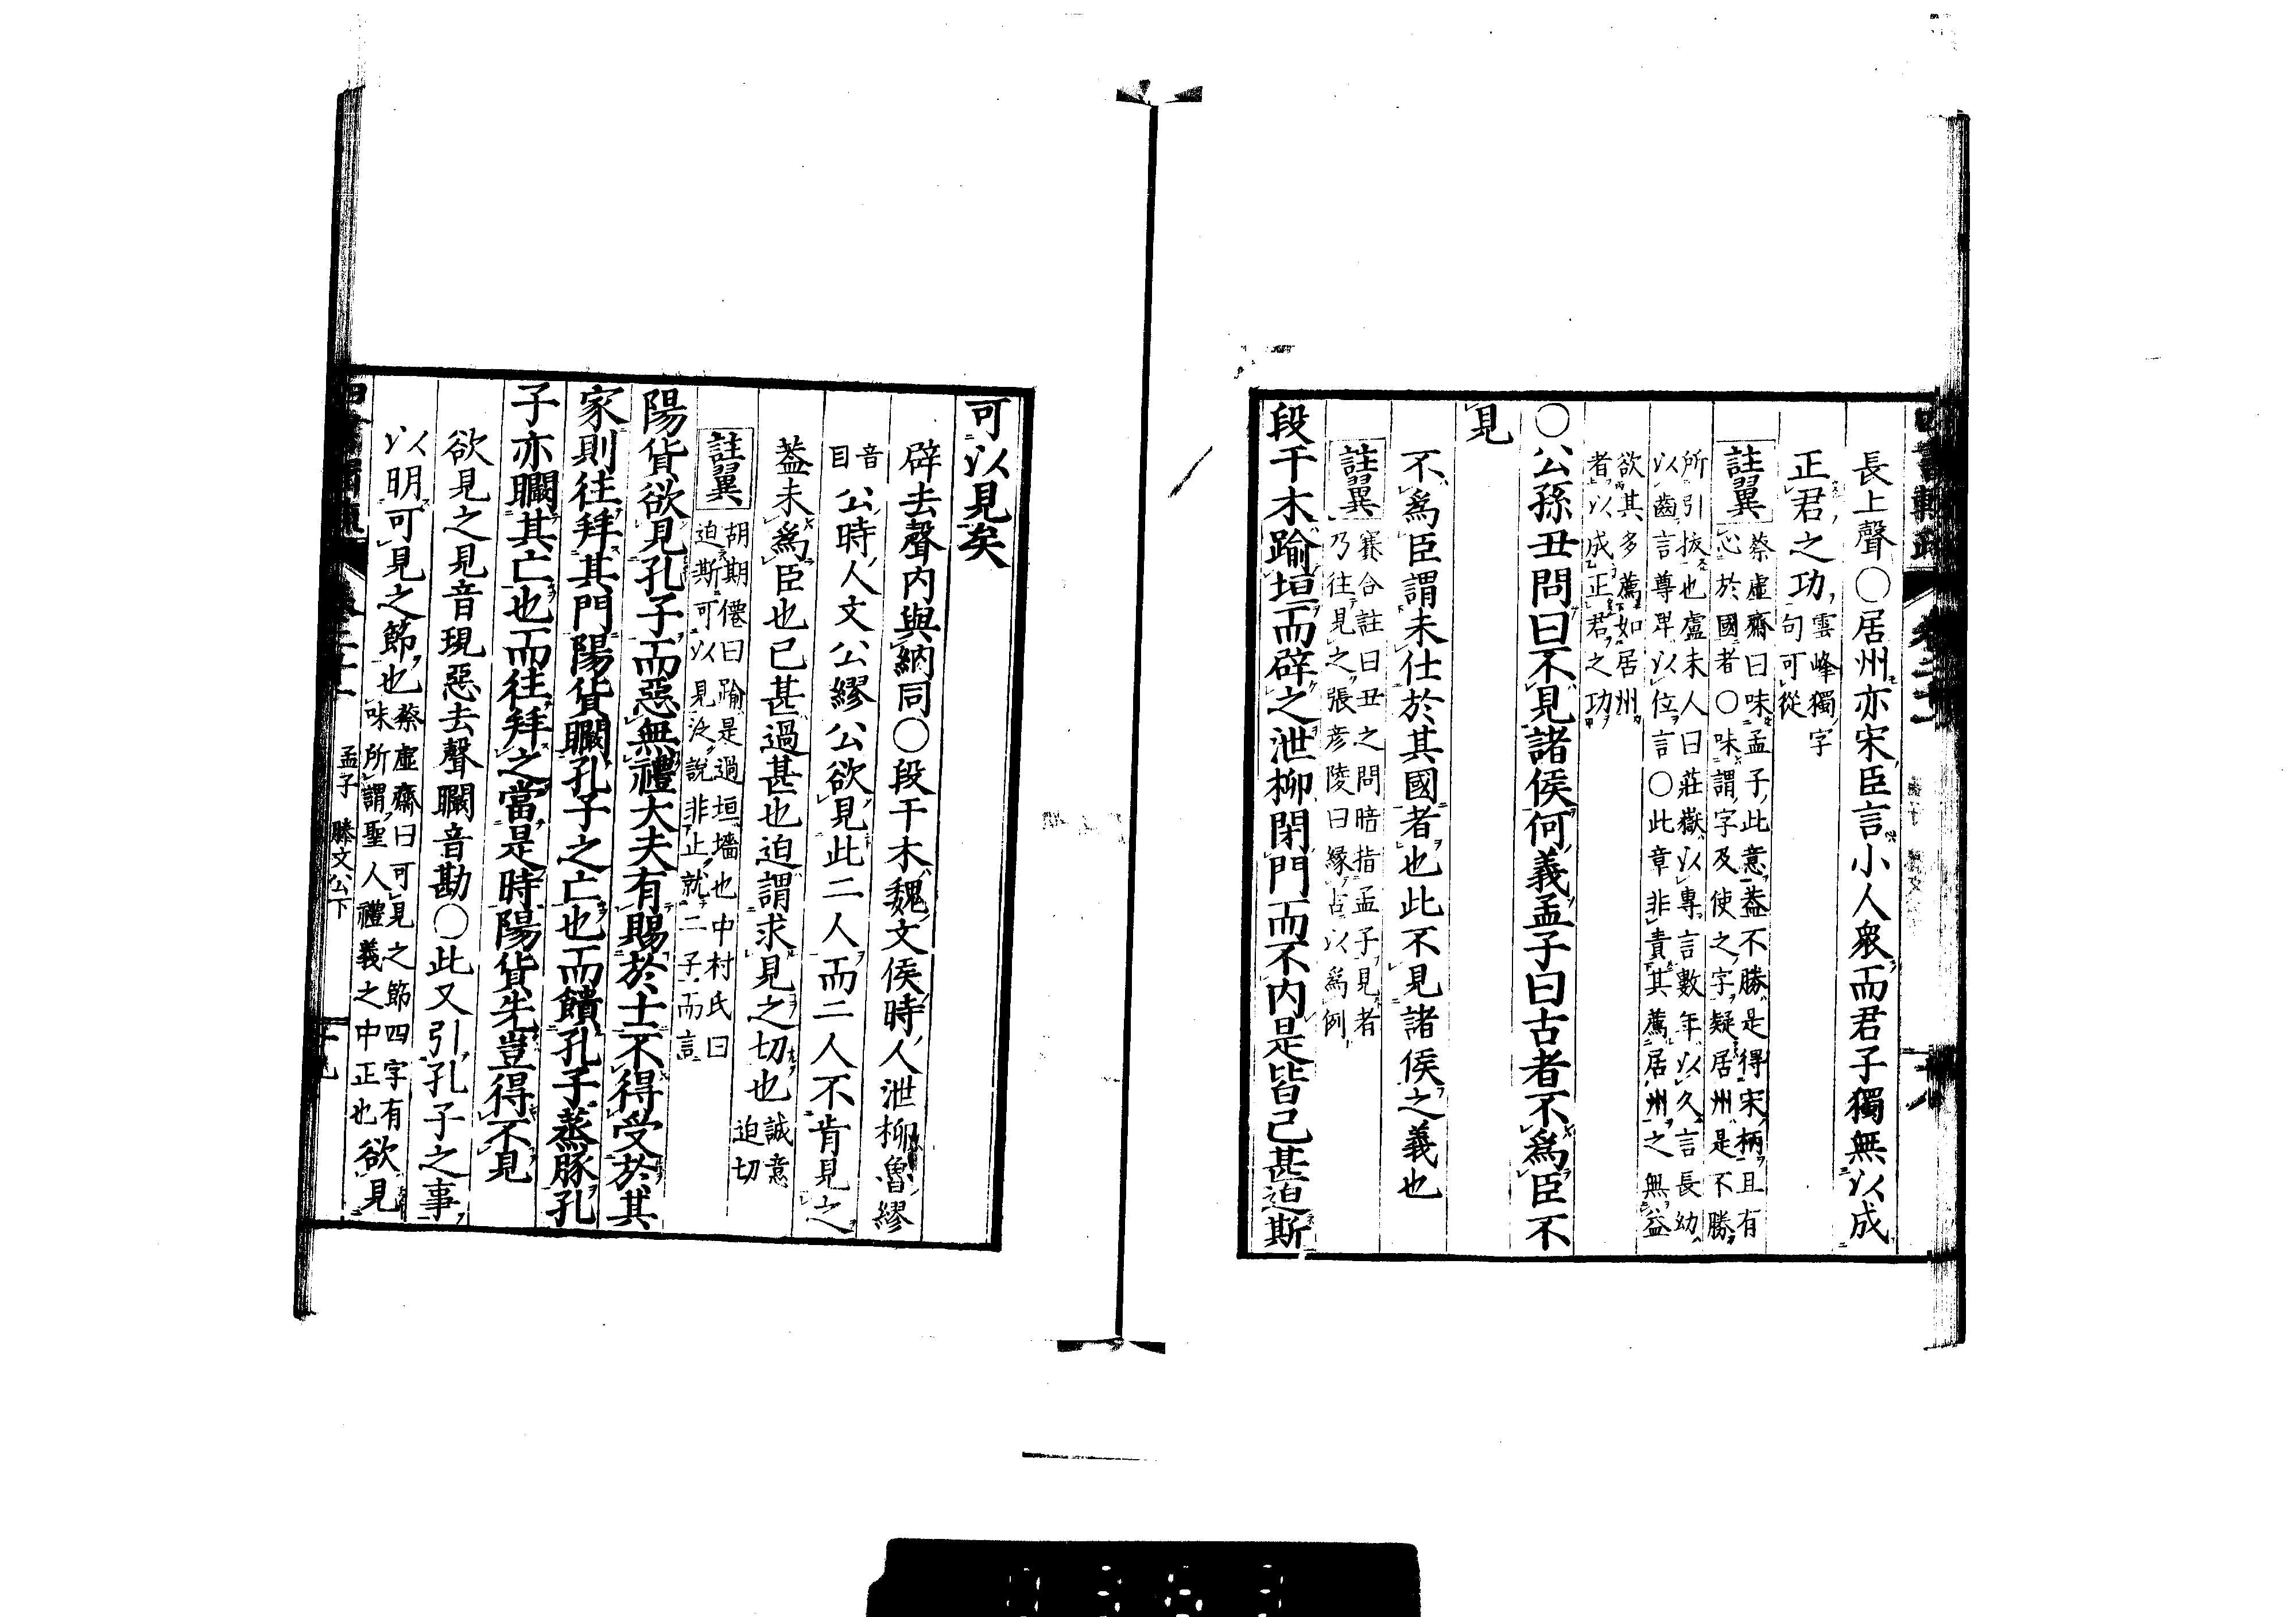 長上聲〇居州亦宋臣言小人衆而君子獨無以成
正君之功雲峰獨字
一句可從
註翼 蔡虛齋曰味孟子此意蓋不勝是得宋柄且有
心於國者〇味謂字及使之字疑居州是不勝
所引拔也盧未人曰莊嶽以專言數年以久言長幼
以齒言尊卑以位言〇此章非責其薦居州之無益
欲其多薦如居州
者以成正君之功
〇公孫丑問曰不見諸侯何義孟子曰古者不爲臣不
見
不爲臣謂未仕於其國者也此不見諸侯之義也
註翼 賽合註曰丑之問暗指孟子見者
乃往見之張彦陵曰緣古以爲例
段干木踰垣而辟之泄柳閉門而不內是皆已甚迫斯
可以見矣
辟去聲內與納同〇段干木魏文侯時人泄柳魯繆
音
目
公時人文公繆公欲見此二人而二人不肯見之
蓋未爲臣也已甚過甚也迫謂求見之切也誠意
迫切
註翼 胡期僊曰踰是過垣墻也中村氏曰
迫斯可以見泛說非止就二子而言
陽貨欲見孔子而惡無禮大夫有賜於士不得受於其
家則往拜其門陽貨矙孔子之亡也而饋孔子蒸豚孔
子亦矙其亡也而往拜之當是時陽貨先豈得不見
欲見之見音現惡去聲矙音勘〇此又引孔子之事
以明可見之節也蔡虛齋曰可見之節四字有
味所謂聖人禮義之中正也
欲見
孟子 滕文公下